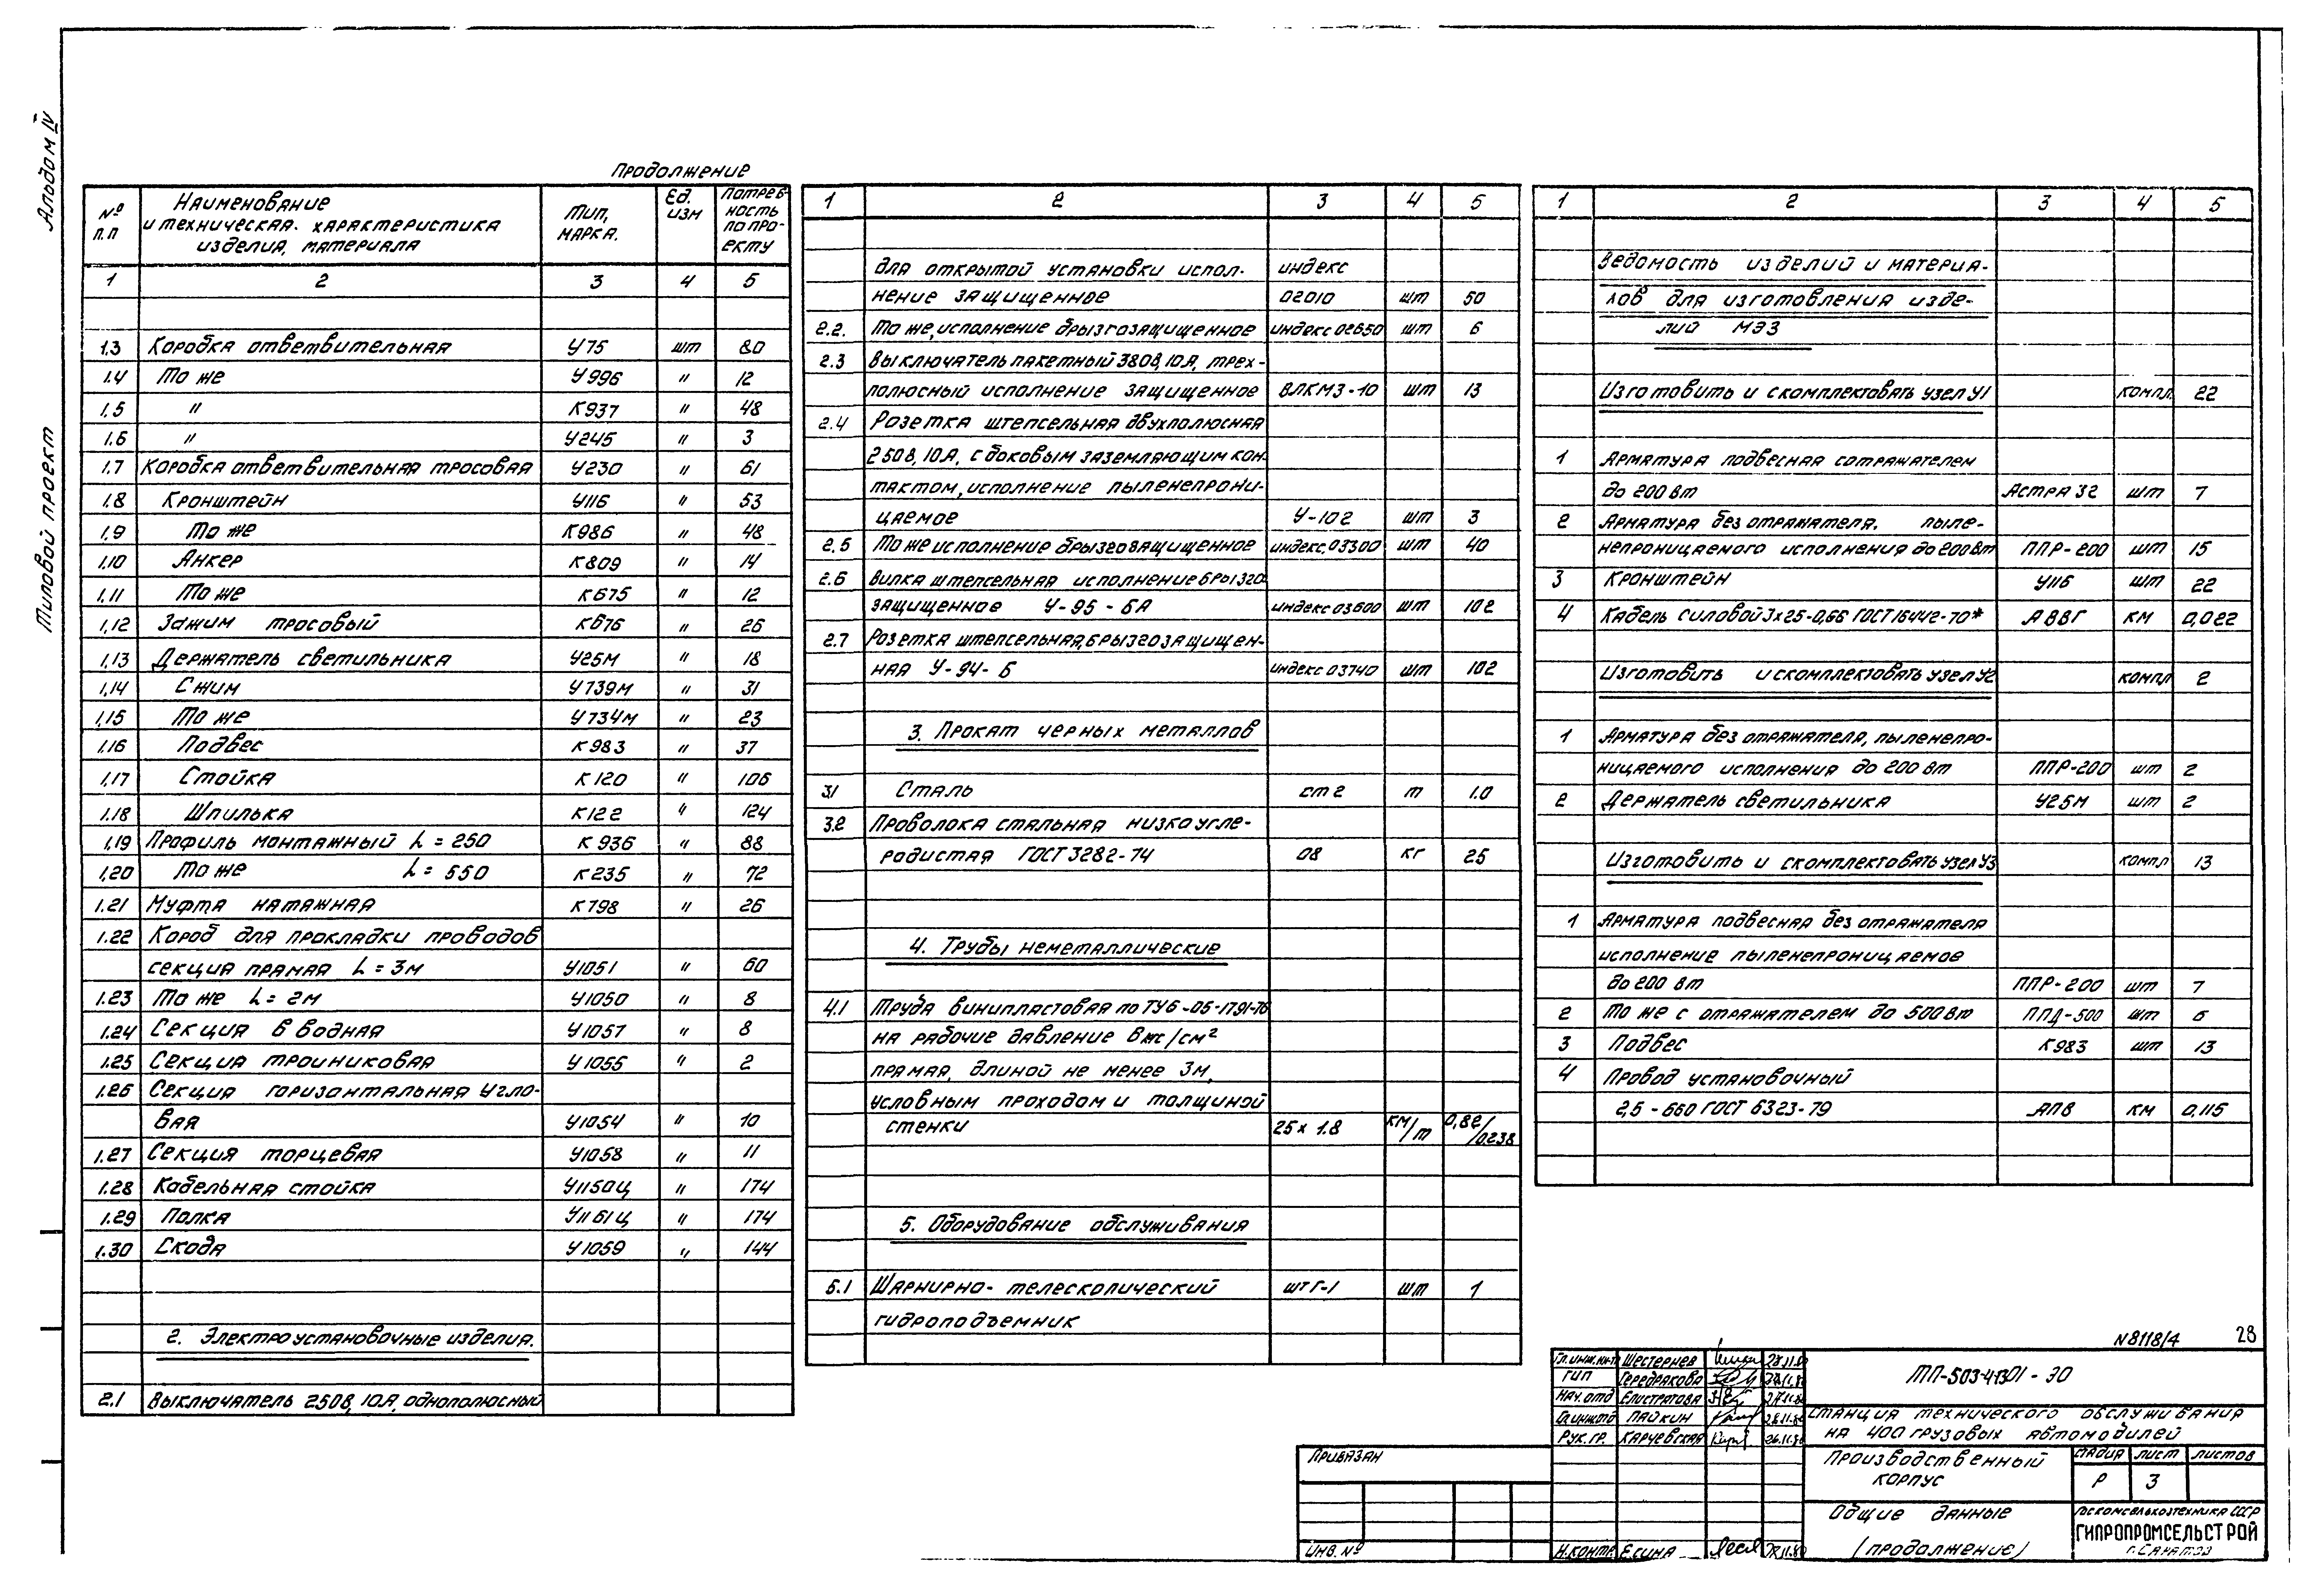 Альбом IV
Типовой проект
Продолжение
№ п.п | Наименование и техническая характеристика изделия, материала | Тип, марка. | Ед. изм | Потреб-ность по про-екту
1 | 2 | 3 | 4 | 5
1.3 Коробка ответвительная У75 шт 80
1.4 То же У996 " 12
1.5 " К937 " 48
1.6 " У245 " 3
1.7 Коробка ответвительная тросовая У230 " 61
1.8 Кронштейн У116 " 53
1.9 То же К986 " 48
1.10 Анкер К809 " 14
1.11 То же К675 " 12
1.12 Зажим тросовый К676 " 26
1.13 Держатель светильника У25М " 18
1.14 Сжим У739М " 31
1.15 То же У734М " 23
1.16 Подвес К983 " 37
1.17 Стойка К120 " 106
1.18 Шпилька К122 " 124
1.19 Профиль монтажный L = 250 К936 " 88
1.20 То же L = 550 К235 " 72
1.21 Муфта натяжная К798 " 26
1.22 Короб для прокладки проводов
секция прямая L = 3м У1051 " 60
1.23 То же L = 2м У1050 " 8
1.24 Секция вводная У1057 " 8
1.25 Секция троиниковая У1055 " 2
1.26 Секция горизонтальная угло-
вая У1054 " 10
1.27 Секция торцевая У1058 " 11
1.28 Кабельная стойка У1150Ц " 174
1.29 Полка У1161Ц " 174
1.30 Скоба У1059 " 144
2. Электроустановочные изделия.
2.1 Выключатель 250В, 10А, однополюсный
1 2 3 4 5
для открытой установки испол- индекс
нение защищенное 02010 шт 50
2.2. То же, исполнение брызгозащищенное индекс 02650 шт 6
2.3 Выключатель пакетный 380В, 10А, трех-
полюсный исполнение защищенное ВПКМ3-10 шт 13
2.4 Розетка штепсельная двухполюсная
250В, 10А, с боковым заземляющим кон-
тактом, исполнение пыленепрони-
цаемое У-102 шт 3
2.5 То же исполнение брызгозащищенное индекс 03300 шт 40
2.6 Вилка штепсельная исполнение брызго-
защищенное У-95-БА индекс 03600 шт 102
2.7 Розетка штепсельная, брызгозащищен-
ная У-94-Б индекс 03740 шт 102
3. Прокат черных металлов
3.1 Сталь ст 2 т 1.0
3.2 Проволока стальная низкоугле-
родистая ГОСТ 3282-74 08 кг 25
4. Трубы неметаллические
4.1 Труба винипластовая по ТУ6-05-1791-76
на рабочие давление кгс/см²
прямая, длиной не менее 3м,
условным проходом и толщиной
стенки 25 х 1.8 км/т 0,82/0238
5. Оборудование обслуживания
5.1 Шарнирно-телесколический ШТГ-1 шт 1
гидроподъемник
1 2 3 4 5
Ведомость изделий и материа-
лов для изготовления изде-
лий МЭЗ
Изготовить и скомплектовать узел У1 компл 22
1 Арматура подвесная сотражателем
до 200 Вт Астра 32 шт 7
2 Арматура без отражателя. пыле-
непроницаемого исполнения до 200 Вт ППР-200 шт 15
3 Кронштейн У116 шт 22
4 Кабель силовой 3х25-0,66 ГОСТ 16442-70* АВВГ км 0,022
Изготовить и скомплектовать узел У2 компл 2
1 Арматура без отражателя, пыленепро-
ницаемого исполнения до 200 Вт ППР-200 шт 2
2 Держатель светильника У25М шт 2
Изготовить и скомплектовать узел У3 компл 13
1 Арматура подвесная без отражателя
исполнение пыленепроницаемое
до 200 Вт ППР-200 шт 7
2 То же с отражателем до 500 Вт ППД-500 шт 6
3 Подвес К983 шт 13
4 Провод установочный
2,5-660 ГОСТ 6323-79 АПВ км 0,115
N8118/4 28
Гл.инж.ин-та Шестернев 28.11.80
ГИП Середракова
Нач.отд Елистратова 27.11.80
Гл.инж.отд Пайкин 28.11.80
Рук.гр. Карчевская 26.11.80
Н.контр Есина
ТП-503-4-1301-ЭО
Станция технического обслуживания
на 400 грузовых автомобилей
Производственный
корпус
Стадия лист листов
Р 3
Общие данные
(продолжение)
Госкомсельхозтехника СССР
ГИПРОПРОМСЕЛЬСТРОЙ
г. Саратов
Привязан
Инв. №